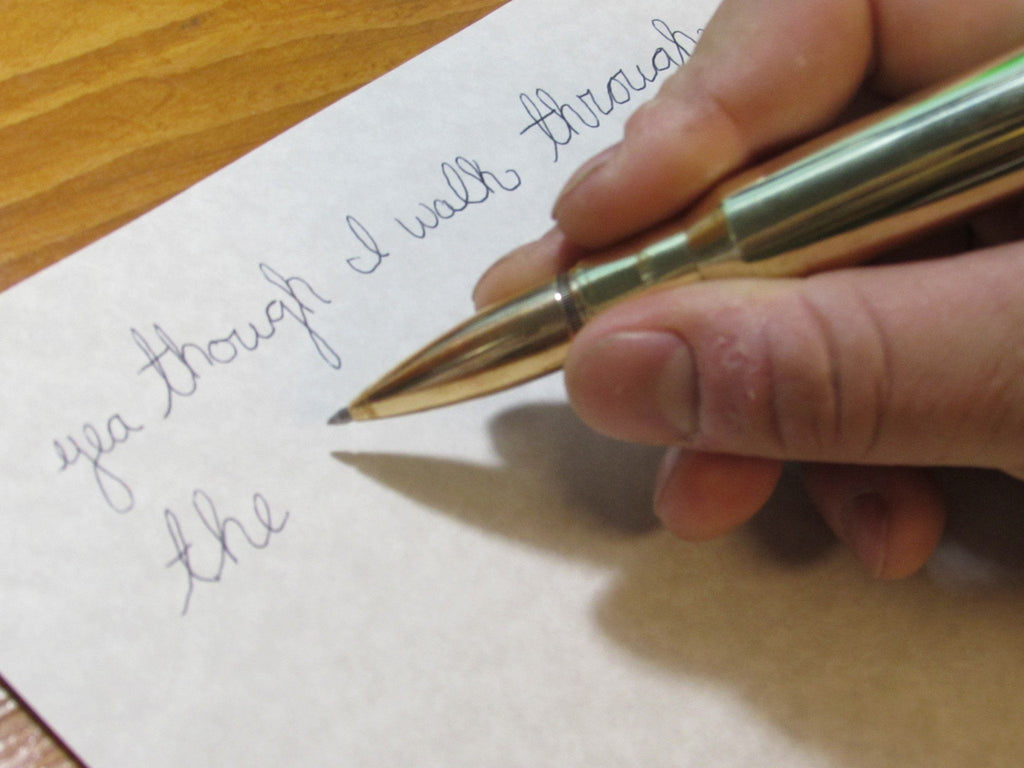 yea though I walk through
the